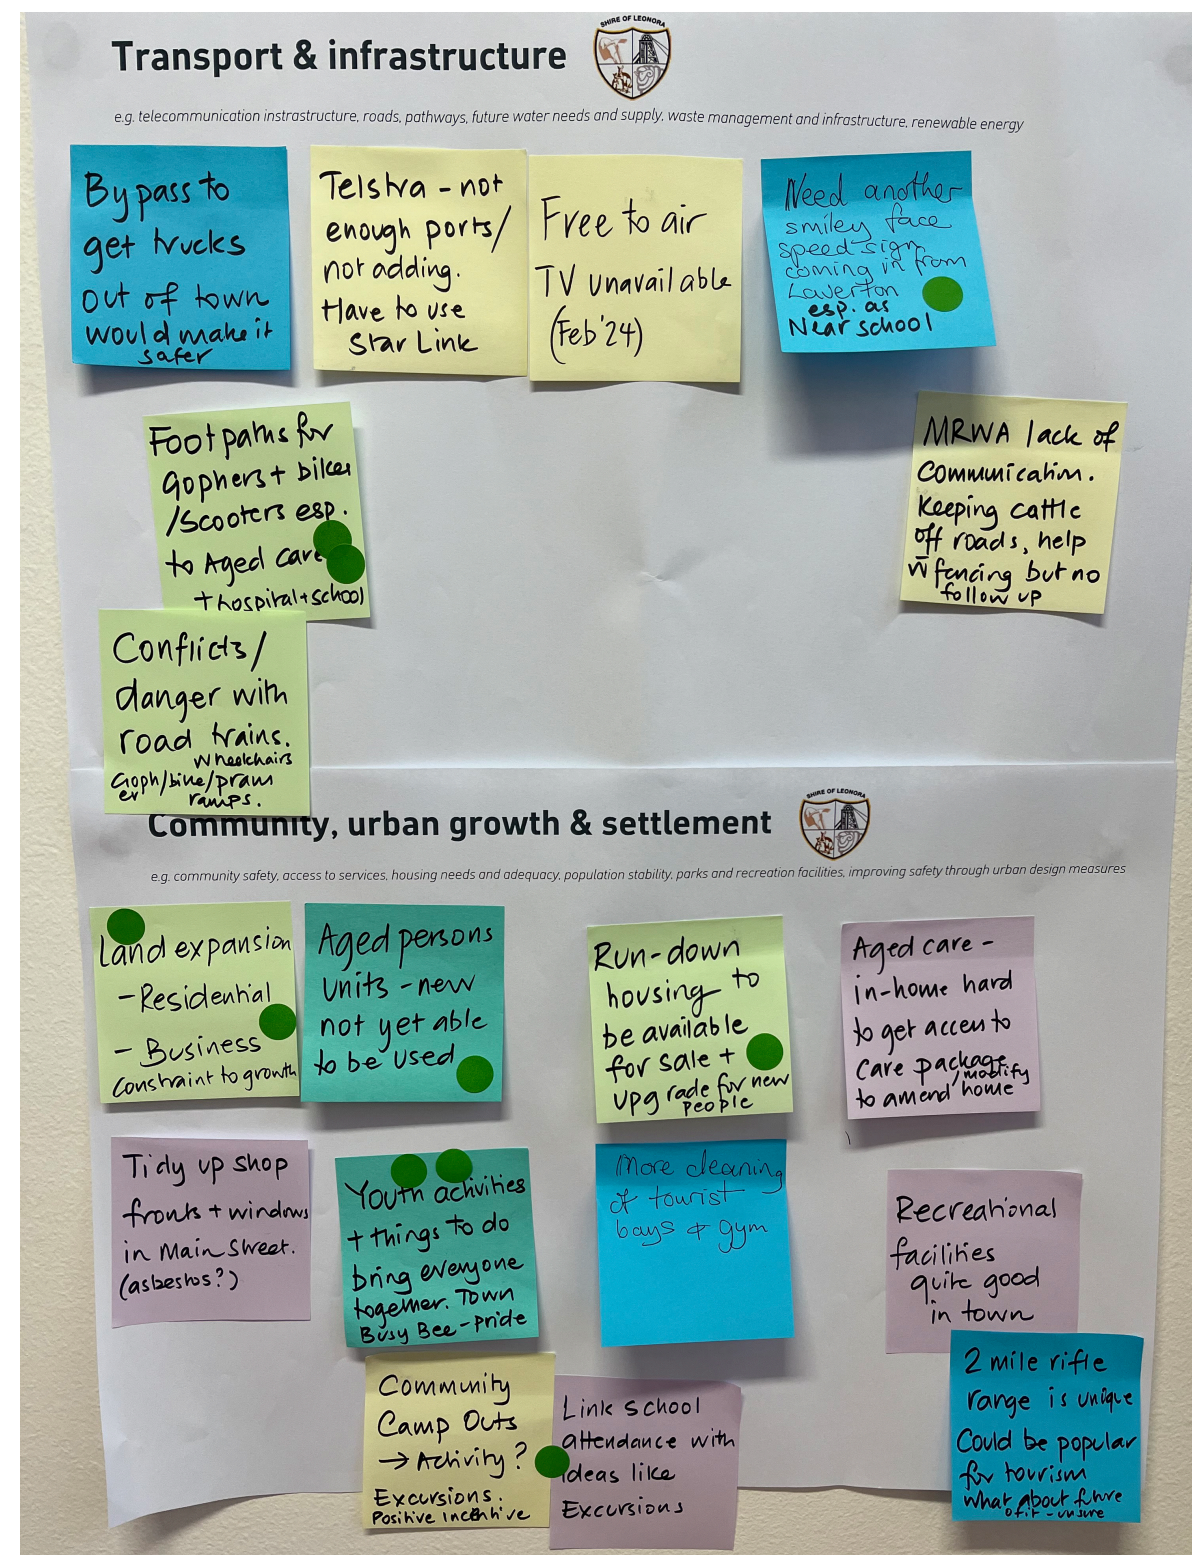 SHIRE OF LEONORA
Transport & infrastructure
e.g. telecommunication instrastructure, roads, pathways, future water needs and supply, waste management and infrastructure, renewable energy
Bypass to
get trucks
out of town
would make it
safer
Telstra - not
enough ports/
not adding.
Have to use
Star Link
Free to air
TV unavailable
(Feb '24)
Need another
smiley face
speed sign
coming in from
Laverton
esp. as
Near school
Footpaths for
Gophers + bikes
/Scooters esp.
to Aged care
+ hospital + school
MRWA lack of
Communication.
Keeping cattle
off roads, help
w fencing but no
follow up
Conflicts/
danger with
road trains.
Wheelchairs
Goph/bike/pram
er ramps.
SHIRE OF LEONORA
Community, urban growth & settlement
e.g. community safety, access to services, housing needs and adequacy, population stability, parks and recreation facilities, improving safety through urban design measures
Land expansion
- Residential
- Business
Constraint to growth
Aged persons
units - new
not yet able
to be used
Run-down
housing to
be available
for sale +
upgrade for new
people
Aged care -
in-home hard
to get access to
care package
/modify
to amend home
Tidy up shop
fronts + windows
in Main Street.
(asbestos?)
Youth activities
+ things to do
bring everyone
together. Town
Busy Bee - pride
More cleaning
of tourist
bays & gym
Recreational
facilities
quite good
in town
Community
Camp Outs
→ Activity?
Excursions.
Positive Incentive
Link school
attendance with
ideas like
Excursions
2 mile rifle
range is unique
Could be popular
for tourism
what about future
of it - unsure